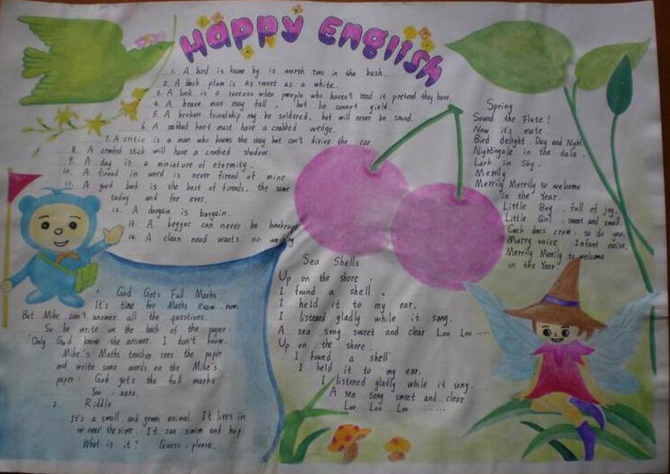 Happy English
1. A bird is know by is worth two in the bush.
2. A black plum is as sweet as a white.
3. A book is a success when people who haven't read it pretend they have.
4. A brave man may fall, but he cannot yield.
5. A broken friendship may be soldered, but will never be sound.
6. A crabbed knot must have a crabbed wedge.
7. A critic is a man who knows the way but can't drive the car.
8. A crooked stick will have a crooked shadow.
9. A day is a miniature of eternity.
10. A friend in word is never friend of mine.
11. A good book is the best of friends, the same
today and for ever.
12. A bargain is bargain.
13. A beggar can never be bankrupt
14. A clean hand wants no washing
Spring
Sound the Flute!
Now it's mute.
Bird delight. Day and Night
Nightingale in the dale.
Lark in Sky.
Merrily
Merrily Merrily to welcome
in the Year.
Little Boy, full of joy,
Little Girl, sweet and small.
Cock does crow, so do you,
Merry voice. Infant noise.
Merrily Merrily to welcome
in the Year
Sea Shells
Up on the shore.
I found a shell.
I held it to my ear.
I listened gladly while it song.
A sea song sweet and clear Loo Loo
Up on the shore.
I found a shell.
I held it to my ear.
I listened gladly while it song.
A sea song sweet and clear
Loo Loo Loo ......
1. God Gets Full Marks
It's time for Maths exam now.
But Mike can't answer all the questions.
So he write on the back of the paper
"Only God know the answer. I don't know.
Mike's Maths teacher sees the paper
and write some words on the Mike's
paper: God gets the full marks
You, zero.
2. Riddle
It's a small and green animal. It lives in
or near the river. It can swim and hop.
What is it? Guess, please.